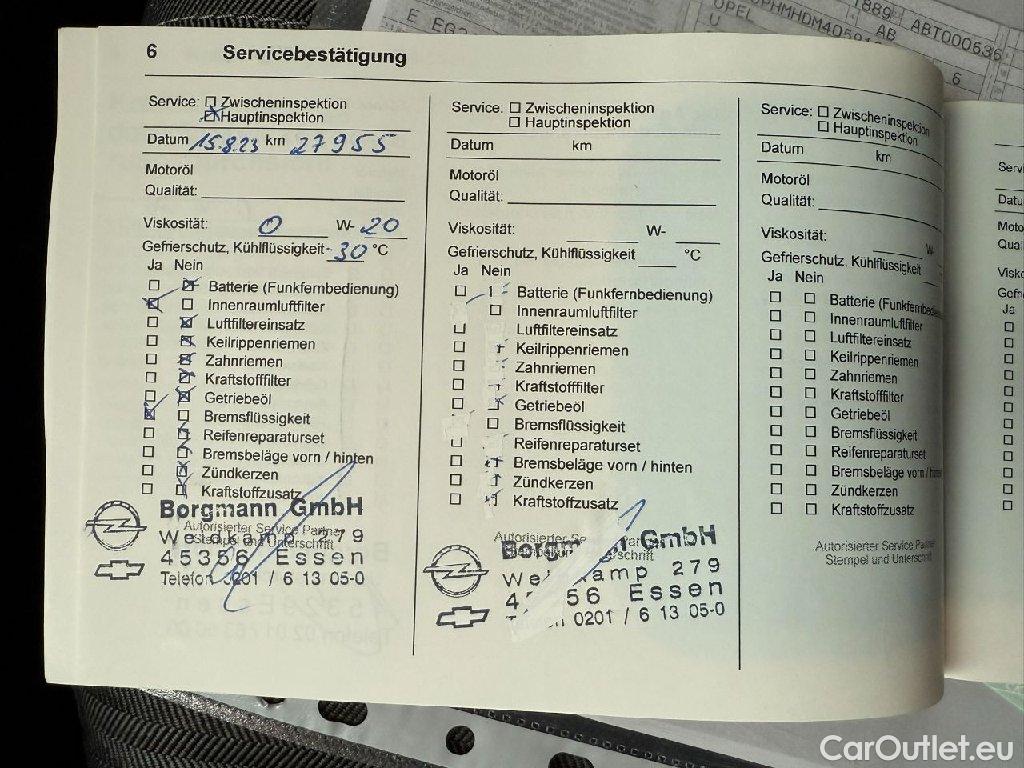 6 Servicebestätigung
Service: Zwischeninspektion
Hauptinspektion
Datum 15.8.23 km 27955
Motoröl
Qualität:
Viskosität: 0 W- 20
Gefrierschutz, Kühlflüssigkeit -30 °C
Ja Nein
Batterie (Funkfernbedienung)
Innenraumluftfilter
Luftfiltereinsatz
Keilrippenriemen
Zahnriemen
Kraftstofffilter
Getriebeöl
Bremsflüssigkeit
Reifenreparaturset
Bremsbeläge vorn / hinten
Zündkerzen
Kraftstoffzusatz
Autorisierter Service Partner
Stempel und Unterschrift
Borgmann GmbH
Weidkamp 279
45356 Essen
Telefon 0201 / 6 13 05-0
Service: Zwischeninspektion
Hauptinspektion
Datum km
Motoröl
Qualität:
Viskosität: W-
Gefrierschutz, Kühlflüssigkeit °C
Ja Nein
Batterie (Funkfernbedienung)
Innenraumluftfilter
Luftfiltereinsatz
Keilrippenriemen
Zahnriemen
Kraftstofffilter
Getriebeöl
Bremsflüssigkeit
Reifenreparaturset
Bremsbeläge vorn / hinten
Zündkerzen
Kraftstoffzusatz
GmbH
279
Essen
0201 / 6 13 05-0
Service: Zwischeninspektion
Hauptinspektion
Datum km
Motoröl
Qualität:
Viskosität: W-
Gefrierschutz, Kühlflüssigkeit
Ja Nein
Batterie
Innenraumluftfilter
Luftfiltereinsatz
Keilrippenriemen
Zahnriemen
Kraftstofffilter
Getriebeöl
Bremsflüssigkeit
Reifenreparaturset
Bremsbeläge vorn /
Zündkerzen
Kraftstoffzusatz
Autorisierter Service
Stempel und Unterschrift
Ja
OPEL
AB
ABT000636
6
CarOutlet.eu